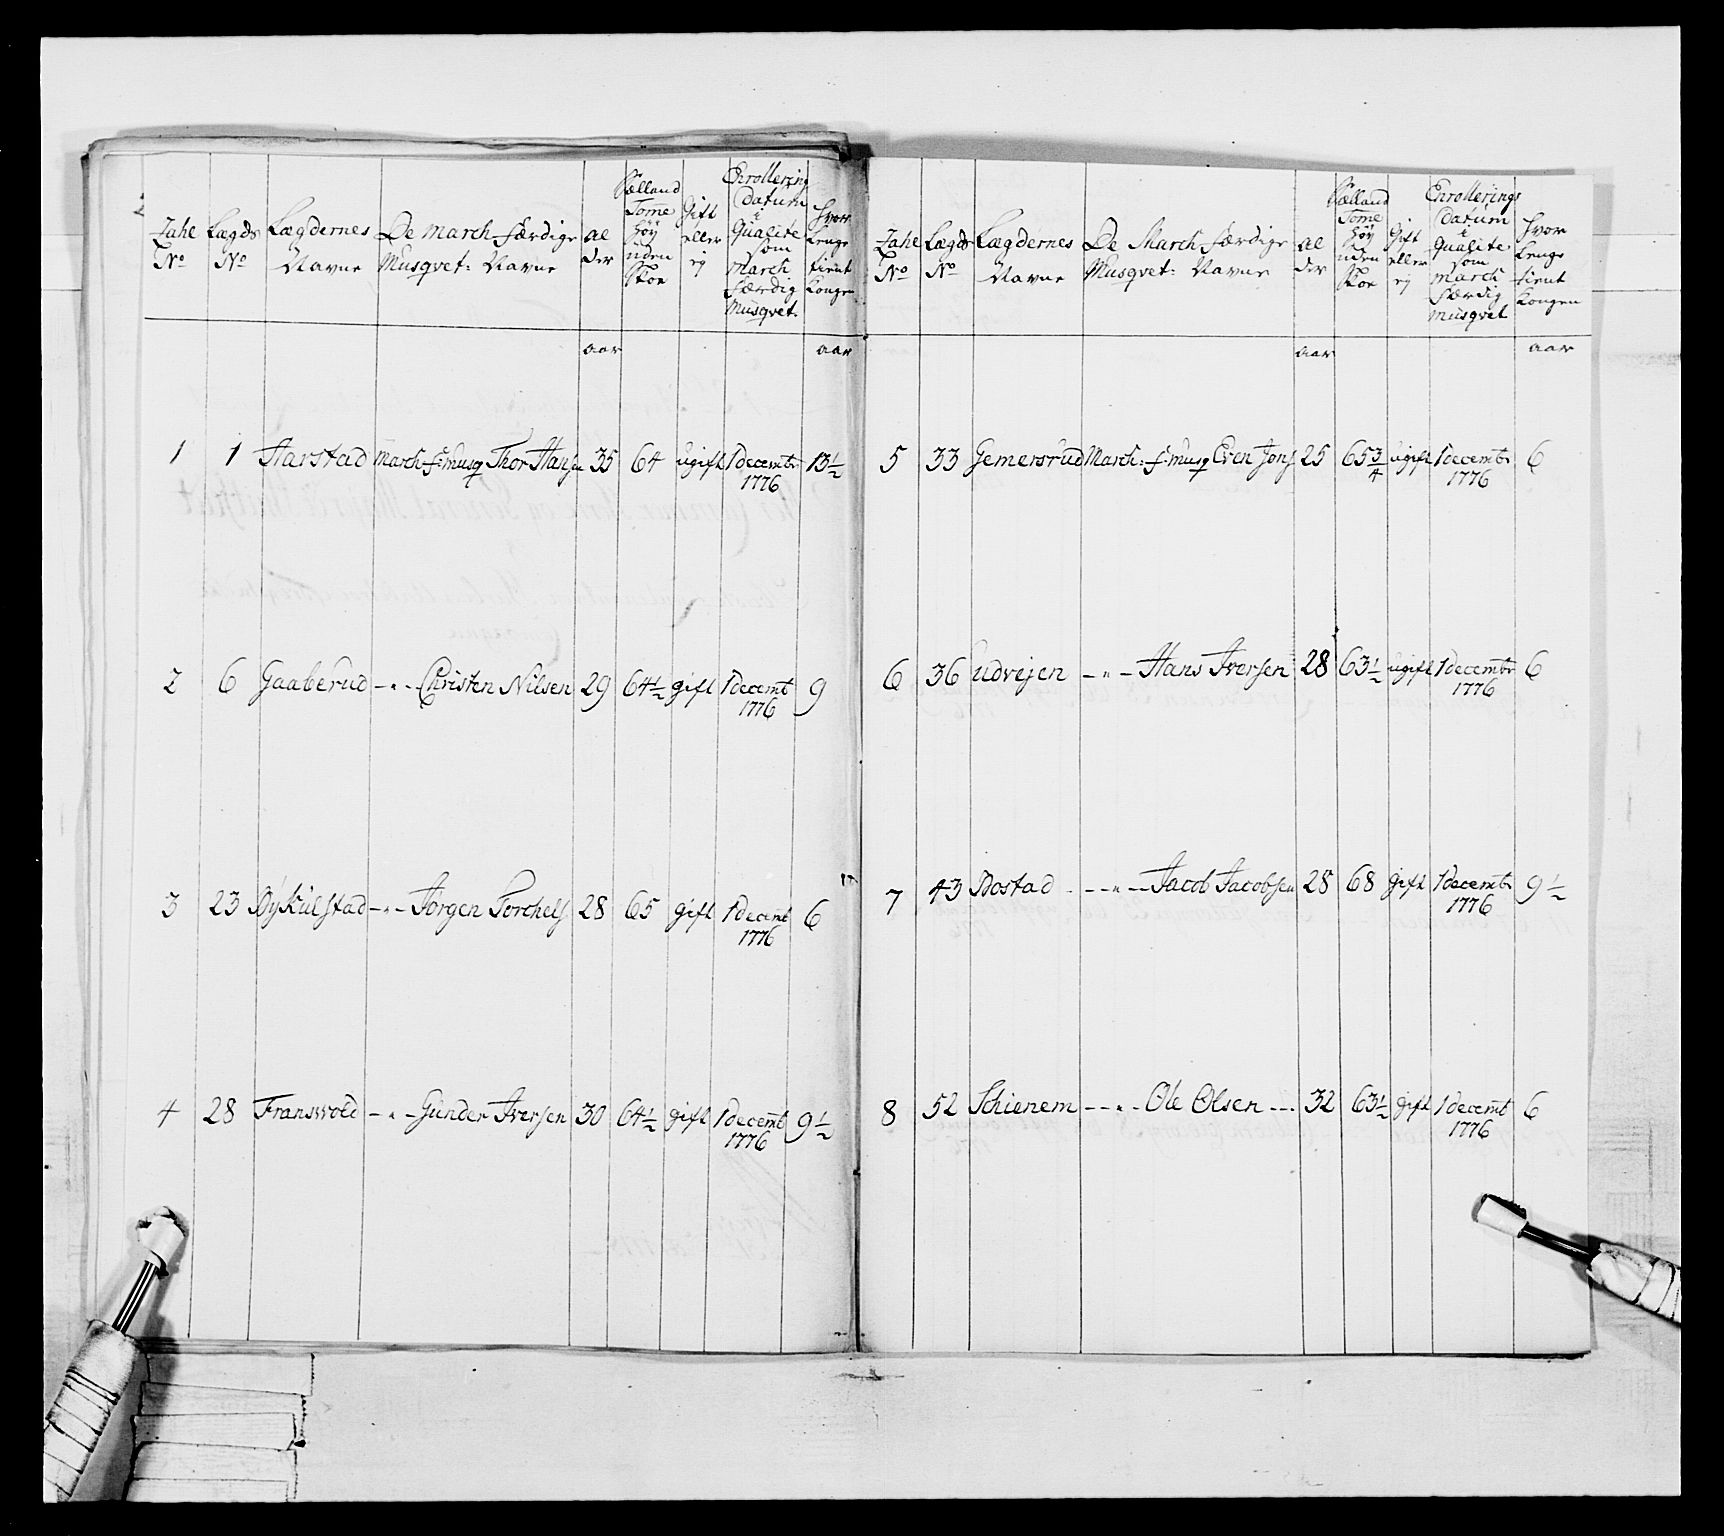 Zahl No
Lægds No
Lægdernes Navne
De march-færdige Musqvet: Navne
al der
Sælland Tome høy uden Skoe
Gift eller ej
Enrollering datum i Qualite som march færdig Musqvet.
hvor lenge tient Kongen
aar aar
1 1 Aarstad march-f: musq Thor Hansen 35 64 ugift 1 decembr 1776 13½
2 6 Gaaberud – „ – Christen Nilsen 29 64½ gift 1 decembt 1776 9
3 23 Bÿkulstad – „ – Jørgen Torchels 28 65 gift 1 decembt 1776 6
4 28 Fransvold – „ – Gunder Iversen 30 64½ gift 1 decembt 1776 9½
Zahl No
Lægds No
Lægdernes Navne
De March færdige Musqvet: Navne
al der
Sælland Tome høy uden Skoe
Gift eller ej
Enrollerings datum i Qualite som march færdig musqvet
hvor lenge tient Kongen
aar aar
5 33 Gemersrud March: f: musq Even Jons 25 65¾ ugift 1 decembr 1776 6
6 36 Udvejen – „ – Hans Iversen 28 63½ ugift 1 decembr 1776 6
7 43 Bostad – – „ – Jacob Jacobsen 28 68 gift 1 decembr 1776 9½
8 52 Schienem – – „ – Ole Olsen – – 32 63½ gift 1 decembt 1776 6